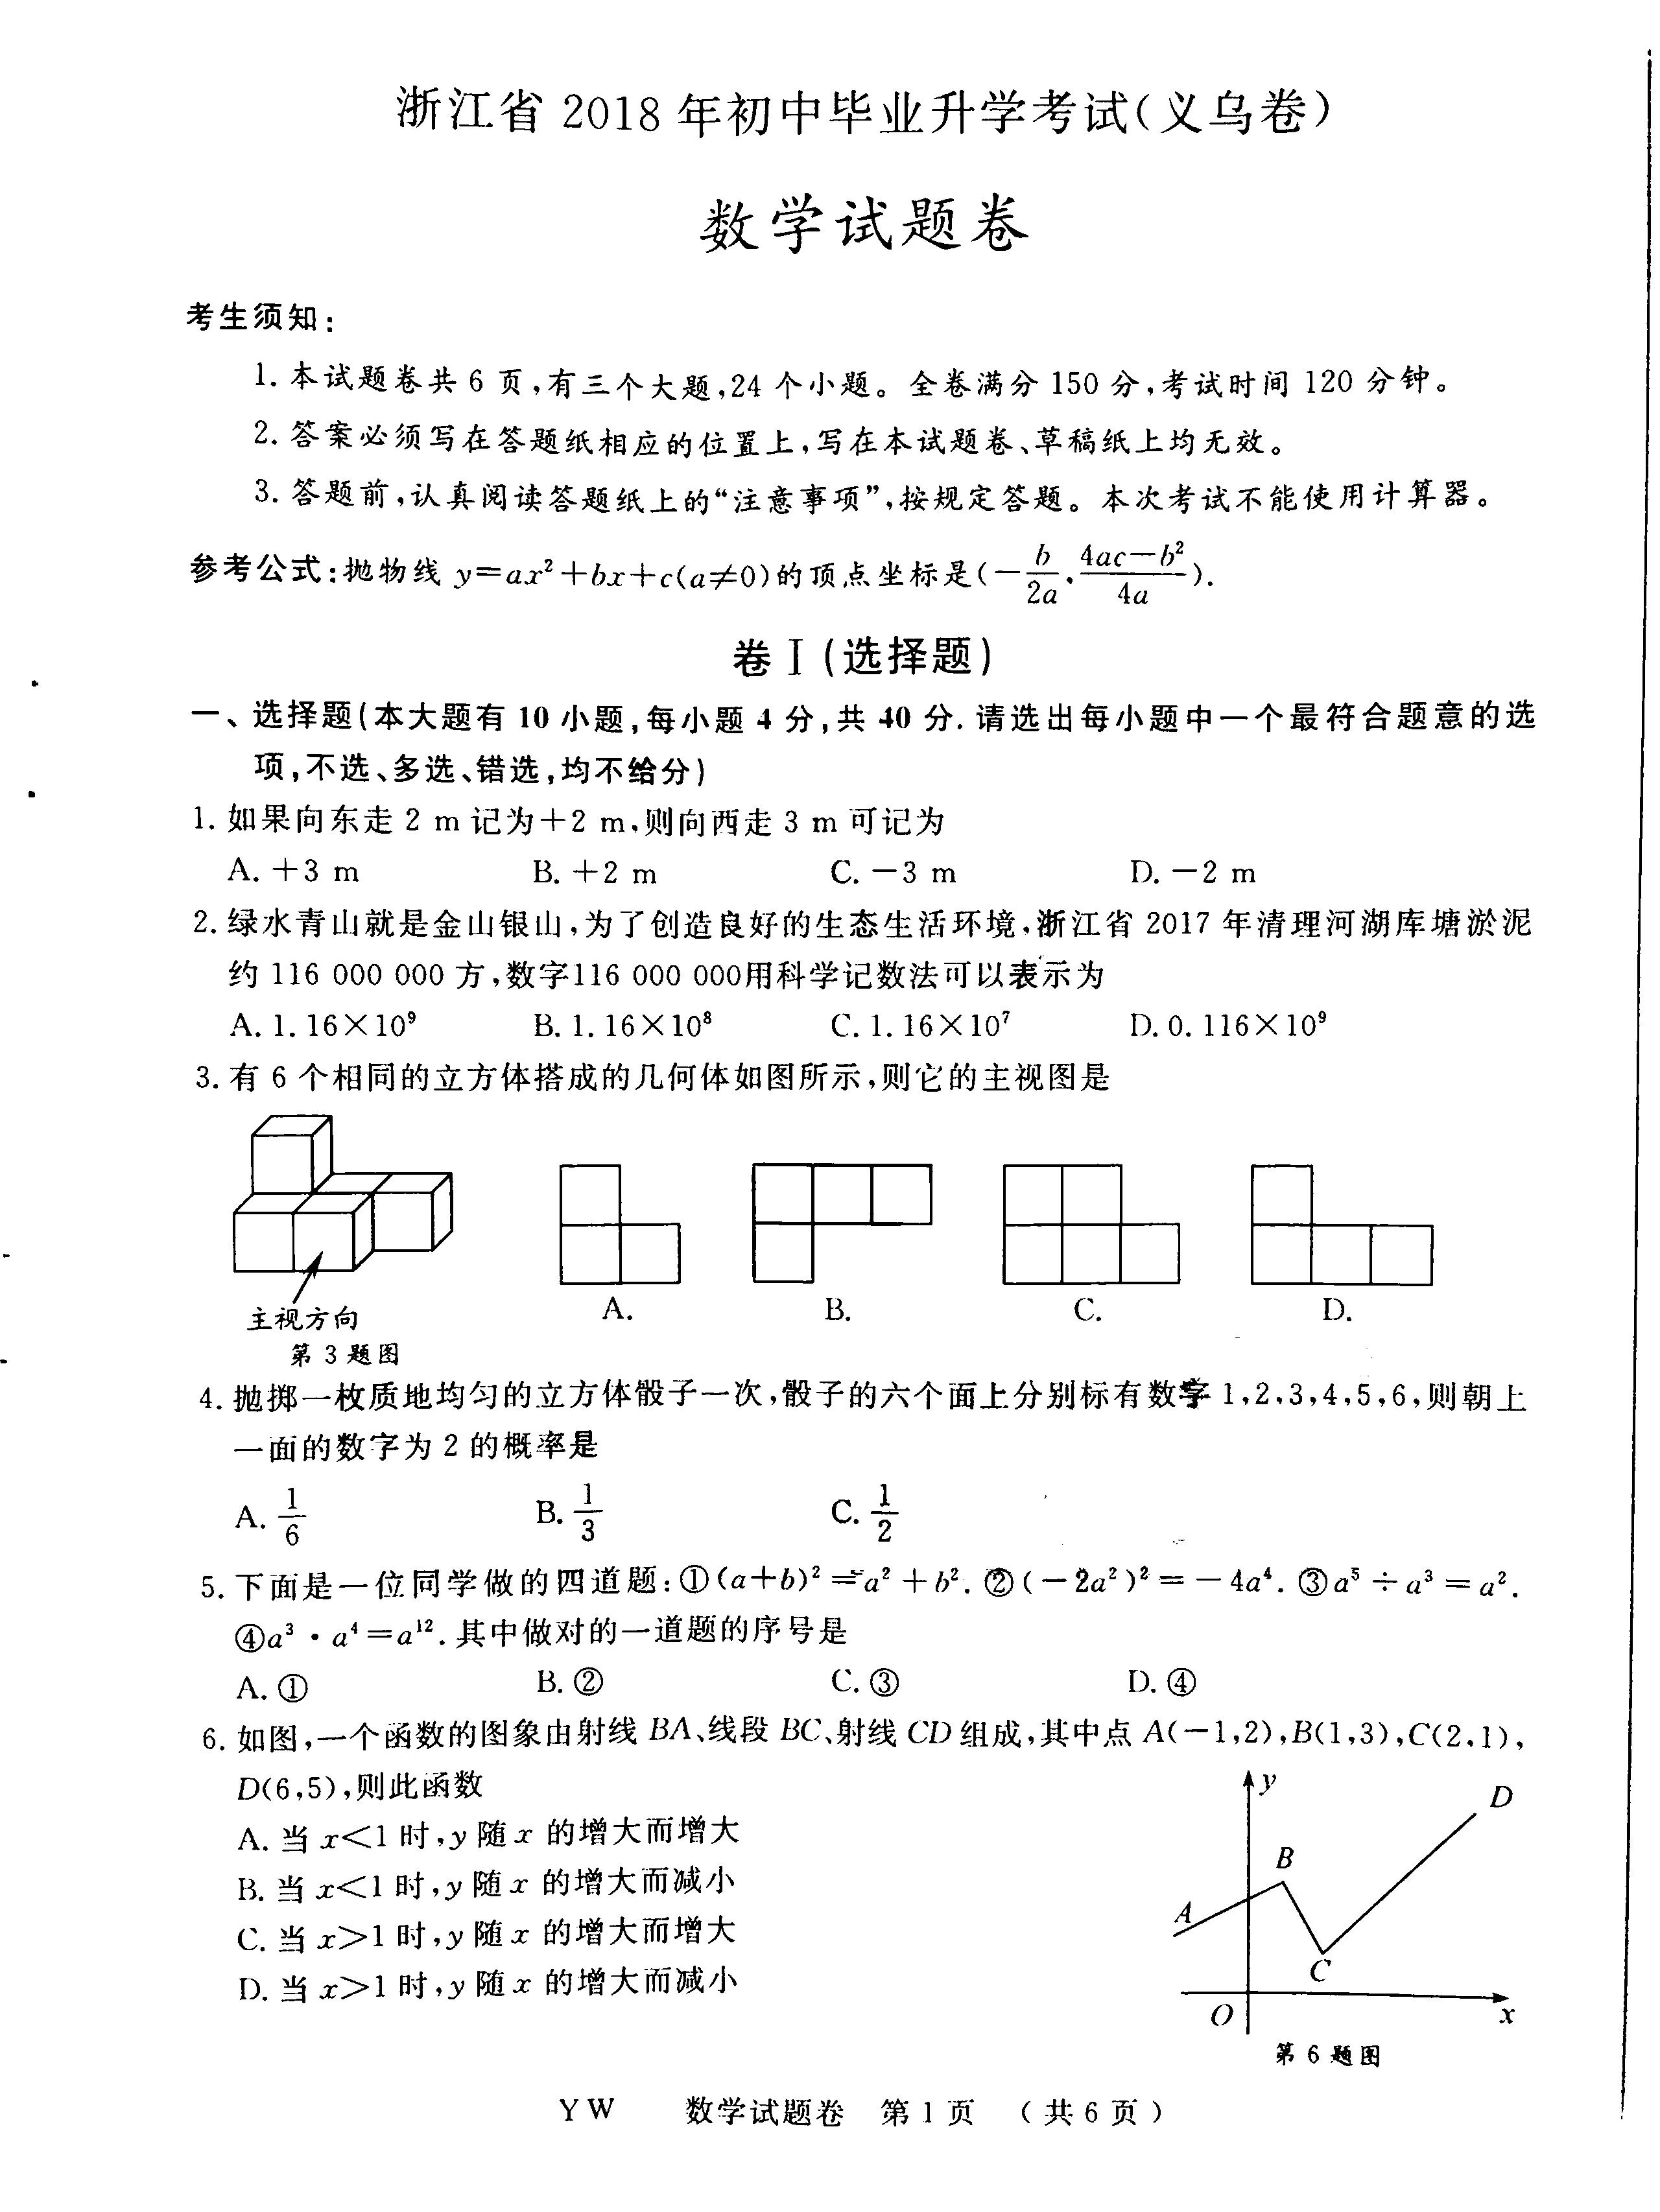 浙江省 2018 年初中毕业升学考试(义乌卷)
数学试题卷
考生须知:
1. 本试题卷共 6 页,有三个大题,24 个小题。全卷满分 150 分,考试时间 120 分钟。
2. 答案必须写在答题纸相应的位置上,写在本试题卷、草稿纸上均无效。
3. 答题前,认真阅读答题纸上的“注意事项”,按规定答题。本次考试不能使用计算器。
参考公式:抛物线 y=ax²+bx+c(a≠0)的顶点坐标是(-b/2a,(4ac-b²)/4a).
卷Ⅰ(选择题)
一、选择题(本大题有 10 小题,每小题 4 分,共 40 分.请选出每小题中一个最符合题意的选
项,不选、多选、错选,均不给分)
1. 如果向东走 2 m 记为+2 m,则向西走 3 m 可记为
A. +3 m B. +2 m C. -3 m D. -2 m
2. 绿水青山就是金山银山,为了创造良好的生态生活环境,浙江省 2017 年清理河湖库塘淤泥
约 116 000 000 方,数字116 000 000用科学记数法可以表示为
A. 1.16×10⁹ B. 1.16×10⁸ C. 1.16×10⁷ D. 0.116×10⁹
3. 有 6 个相同的立方体搭成的几何体如图所示,则它的主视图是
主视方向
第 3 题图
A. B. C. D.
4. 抛掷一枚质地均匀的立方体骰子一次,骰子的六个面上分别标有数字 1,2,3,4,5,6,则朝上
一面的数字为 2 的概率是
A. 1/6 B. 1/3 C. 1/2
5. 下面是一位同学做的四道题:①(a+b)²=a²+b². ②(-2a²)²=-4a⁴. ③a⁵÷a³=a².
④a³·a⁴=a¹². 其中做对的一道题的序号是
A. ① B. ② C. ③ D. ④
6. 如图,一个函数的图象由射线 BA、线段 BC、射线 CD 组成,其中点 A(-1,2),B(1,3),C(2,1),
D(6,5),则此函数
A. 当 x<1 时,y 随 x 的增大而增大
B. 当 x<1 时,y 随 x 的增大而减小
C. 当 x>1 时,y 随 x 的增大而增大
D. 当 x>1 时,y 随 x 的增大而减小
y
D
B
A
C
O
x
第 6 题图
YW 数学试题卷 第 1 页 (共 6 页)